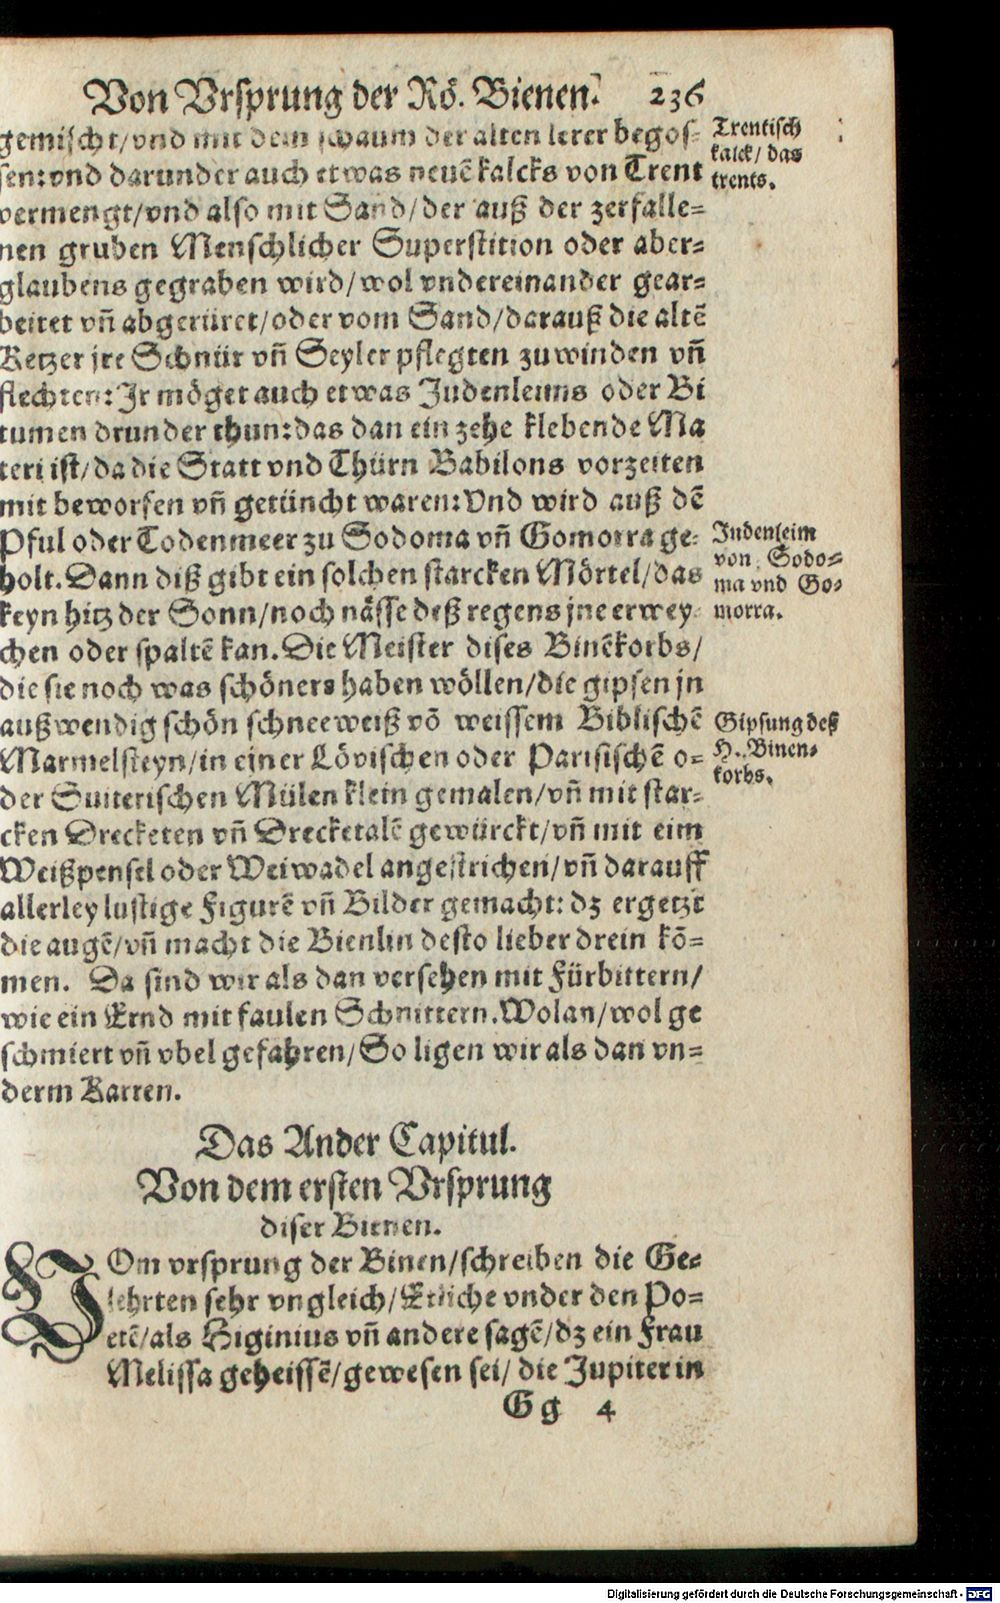 Von Vrsprung der Rö. Bienen. 236
gemischt/vnd mit dem schaum der alten lerer begos-
sen:vnd darunder auch etwas neuē kalcks von Trent
vermengt/vnd also mit Sand/der auß der zerfalle-
nen gruben Menschlicher Superstition oder aber-
glaubens gegraben wird/wol vndereinander gear-
beitet vñ abgerüret/oder vom Sand/darauß die altē
Ketzer jre Schnür vñ Seyler pflegten zuwinden vñ
flechten: Ir möget auch etwas Judenleims oder Bi
tumen drunder thun:das dan ein zehe klebende Ma
teri ist/da die Statt vnd Thürn Babilons vorzeiten
mit beworfen vñ getüncht waren: Vnd wird auß dē
Pful oder Todenmeer zu Sodoma vñ Gomorra ge-
holt. Dann diß gibt ein solchen starcken Mörtel/das
keyn hitz der Sonn/noch nässe deß regens jne erwey-
chen oder spaltē kan. Die Meister dises Binēkorbs/
die sie noch was schöners haben wöllen/die gipsen jn
außwendig schön schneeweiß vō weissem Biblischē
Marmelsteyn/in einer Lövischen oder Parisischē o-
der Suiterischen Mülen klein gemalen/vñ mit star-
cken Drecketen vñ Drecketalē gewürckt/vñ mit eim
Weißpensel oder Weiwadel angestrichen/vñ darauff
allerley lustige Figurē vñ Bilder gemacht: dz ergetzt
die augē/vñ macht die Bienlin desto lieber drein kō-
men. Da sind wir als dan versehen mit Fürbittern/
wie ein Ernd mit faulen Schnittern. Wolan/wol ge
schmiert vñ vbel gefahren/So ligen wir als dan vn-
derm Karren.
Trentisch
kalck/das
trents.
Judenleim
von Sodo-
ma vnd Go-
morra.
Gipsung deß
H. Binen-
korbs.
Das Ander Capitul.
Von dem ersten Vrsprung
diser Bienen.
VOm vrsprung der Binen/schreiben die Ge-
lehrten sehr vngleich/Etliche vnder den Po-
etē/als Higinius vñ andere sagē/dz ein Frau
Melissa geheissē/gewesen sei/die Jupiter in
Gg 4
Digitalisierung gefördert durch die Deutsche Forschungsgemeinschaft - DFG